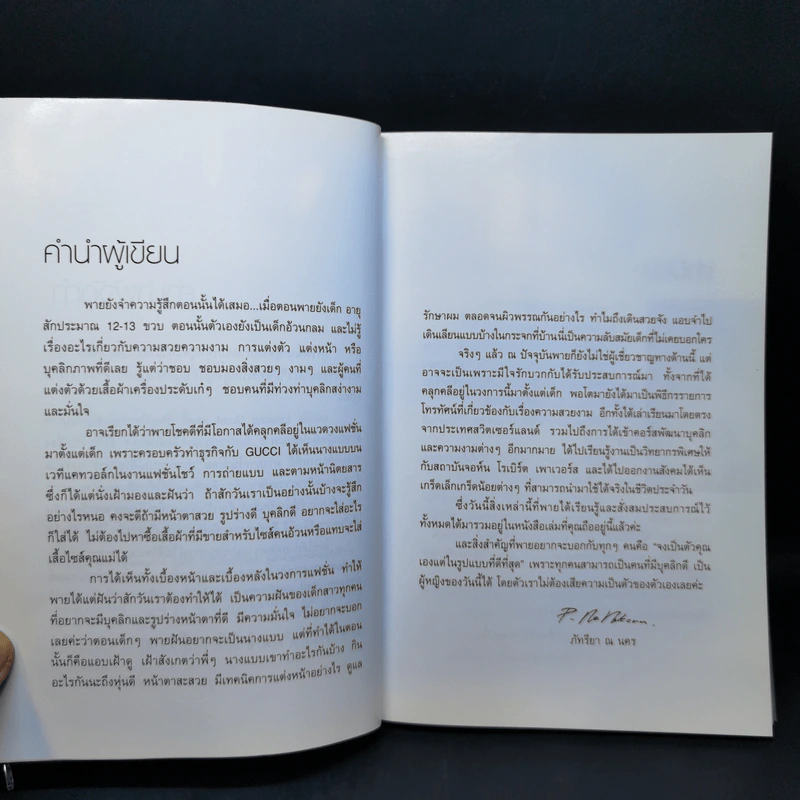 คำนำผู้เขียน
พายยังจำความรู้สึกตอนนั้นได้เสมอ...เมื่อตอนพายยังเด็ก อายุ
สักประมาณ 12-13 ขวบ ตอนนั้นตัวเองยังเป็นเด็กอ้วนกลม และไม่รู้
เรื่องอะไรเกี่ยวกับความสวยความงาม การแต่งตัว แต่งหน้า หรือ
บุคลิกภาพที่ดีเลย รู้แต่ว่าชอบ ชอบมองสิ่งสวยๆ งามๆ และผู้คนที่
แต่งตัวด้วยเสื้อผ้าเครื่องประดับเก๋ๆ ชอบคนที่มีท่วงท่าบุคลิกสง่างาม
และมั่นใจ
อาจเรียกได้ว่าพายโชคดีที่มีโอกาสได้คลุกคลีอยู่ในแวดวงแฟชั่น
มาตั้งแต่เด็ก เพราะครอบครัวทำธุรกิจกับ GUCCI ได้เห็นนางแบบบน
เวทีแคทวอล์กในงานแฟชั่นโชว์ การถ่ายแบบ และตามหน้านิตยสาร
ซึ่งก็ได้แต่นั่งเฝ้ามองและฝันว่า ถ้าสักวันเราเป็นอย่างนั้นบ้างจะรู้สึก
อย่างไรหนอ คงจะดีถ้ามีหน้าตาสวย รูปร่างดี บุคลิกดี อยากจะใส่อะไร
ก็ใส่ได้ ไม่ต้องไปหาซื้อเสื้อผ้าที่มีขายสำหรับไซส์คนอ้วนหรือแทบจะใส่
เสื้อไซส์คุณแม่ได้
การได้เห็นทั้งเบื้องหน้าและเบื้องหลังในวงการแฟชั่น ทำให้
พายได้แต่ฝันว่าสักวันเราต้องทำให้ได้ เป็นความฝันของเด็กสาวทุกคน
ที่อยากจะมีบุคลิกและรูปร่างหน้าตาที่ดี มีความมั่นใจ ไม่อยากจะบอก
เลยค่ะว่าตอนเด็กๆ พายฝันอยากจะเป็นนางแบบ แต่ที่ทำได้ในตอน
นั้นก็คือแอบเฝ้าดู เฝ้าสังเกตว่าพี่ๆ นางแบบเขาทำอะไรกันบ้าง กิน
อะไรกันนะถึงหุ่นดี หน้าตาสะสวย มีเทคนิคการแต่งหน้าอย่างไร ดูแล
รักษาผม ตลอดจนผิวพรรณกันอย่างไร ทำไมถึงเดินสวยจัง แอบจำไป
เดินเลียนแบบบ้างในกระจกที่บ้านนี่เป็นความลับสมัยเด็กที่ไม่เคยบอกใคร
จริงๆ แล้ว ณ ปัจจุบันพายก็ยังไม่ใช่ผู้เชี่ยวชาญทางด้านนี้ แต่
อาจจะเป็นเพราะมีใจรักบวกกับได้รับประสบการณ์มา ทั้งจากที่ได้
คลุกคลีอยู่ในวงการนี้มาตั้งแต่เด็ก พอโตมายังได้มาเป็นพิธีกรรายการ
โทรทัศน์ที่เกี่ยวข้องกับเรื่องความสวยงาม อีกทั้งได้เล่าเรียนมาโดยตรง
จากประเทศสวิตเซอร์แลนด์ รวมไปถึงการได้เข้าคอร์สพัฒนาบุคลิก
และความงามต่างๆ อีกมากมาย ได้ไปเรียนรู้งานเป็นวิทยากรพิเศษให้
กับสถาบันจอห์น โรเบิร์ต เพาเวอร์ส และได้ไปออกงานสังคมได้เห็น
เกร็ดเล็กเกร็ดน้อยต่างๆ ที่สามารถนำมาใช้ได้จริงในชีวิตประจำวัน
ซึ่งวันนี้สิ่งเหล่านี้ที่พายได้เรียนรู้และสั่งสมประสบการณ์ไว้
ทั้งหมดได้มารวมอยู่ในหนังสือเล่มที่คุณถืออยู่นี้แล้วค่ะ
และสิ่งสำคัญที่พายอยากจะบอกกับทุกๆ คนคือ “จงเป็นตัวคุณ
เองแต่ในรูปแบบที่ดีที่สุด” เพราะทุกคนสามารถเป็นคนที่มีบุคลิกดี เป็น
ผู้หญิงของวันนี้ได้ โดยตัวเราไม่ต้องเสียความเป็นตัวของตัวเองเลยค่ะ
ภัทรียา ณ นคร